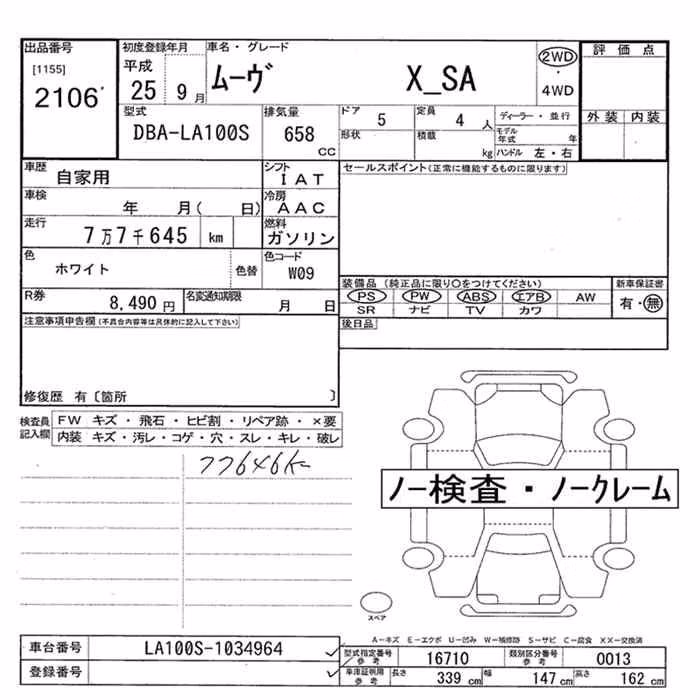 出品番号
[1155]
2106
初度登録年月
平成
25 9月
車名・グレード
ムーヴ X_SA
2WD
・
4WD
評価点
外装 内装
型式
DBA-LA100S
排気量
658 CC
ドア 5
形状
定員 4 人
積載 kg
ディーラー・並行
モデル年式 年
ハンドル 左・右
車歴
自家用
シフト
IAT
セールスポイント(正常に機能するものに限ります)
車検
年 月( 日)
冷房
AAC
走行
7万7千645 km
燃料
ガソリン
色
ホワイト
色替
色コード
W09
R券
8,490 円
名変通知期限
月 日
装備品(純正品に限り○をつけてください)
新車保証書
PS PW ABS エアB AW
有・無
SR ナビ TV カワ
後日品
注意事項申告欄(不具合内容等は具体的に記入して下さい)
修復歴 有〔箇所 〕
検査員記入欄
FW キズ・飛石・ヒビ割・リペア跡・×要
内装 キズ・汚レ・コゲ・穴・スレ・キレ・破レ
77646K
ノー検査・ノークレーム
スペア
A-キズ E-エクボ U-凹み W-補修跡 S-サビ C-腐食 XX-交換済
車台番号
LA100S-1034964
登録番号
型式指定番号 参考
16710
類別区分番号 参考
0013
車庫証明用 参考
長さ 339 cm
幅 147 cm
高さ 162 cm